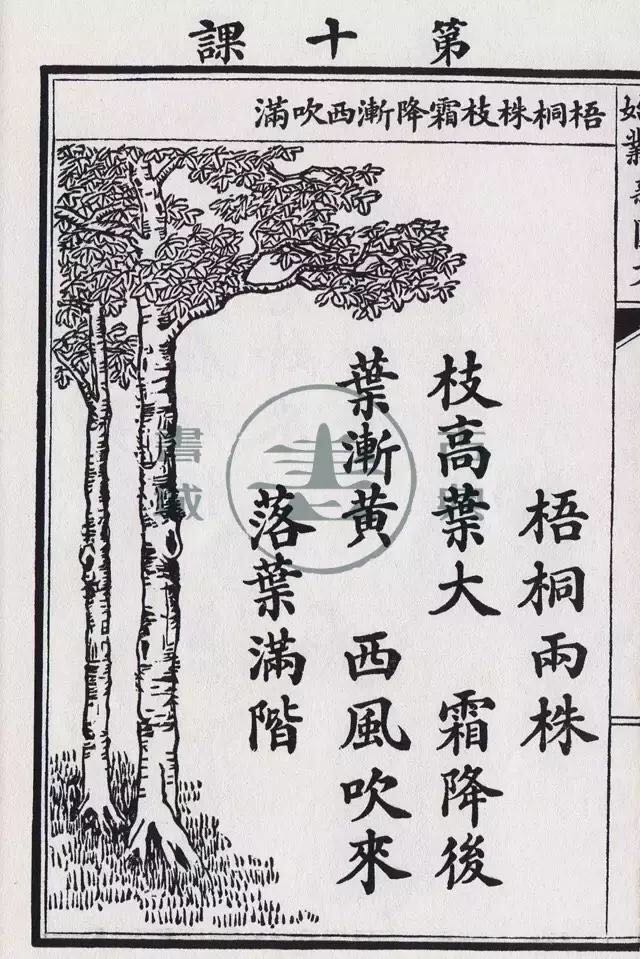 第十課
梧桐株枝霜降漸西吹滿
梧桐兩株
枝高葉大 霜降後
葉漸黃 西風吹來
落葉滿階
書城